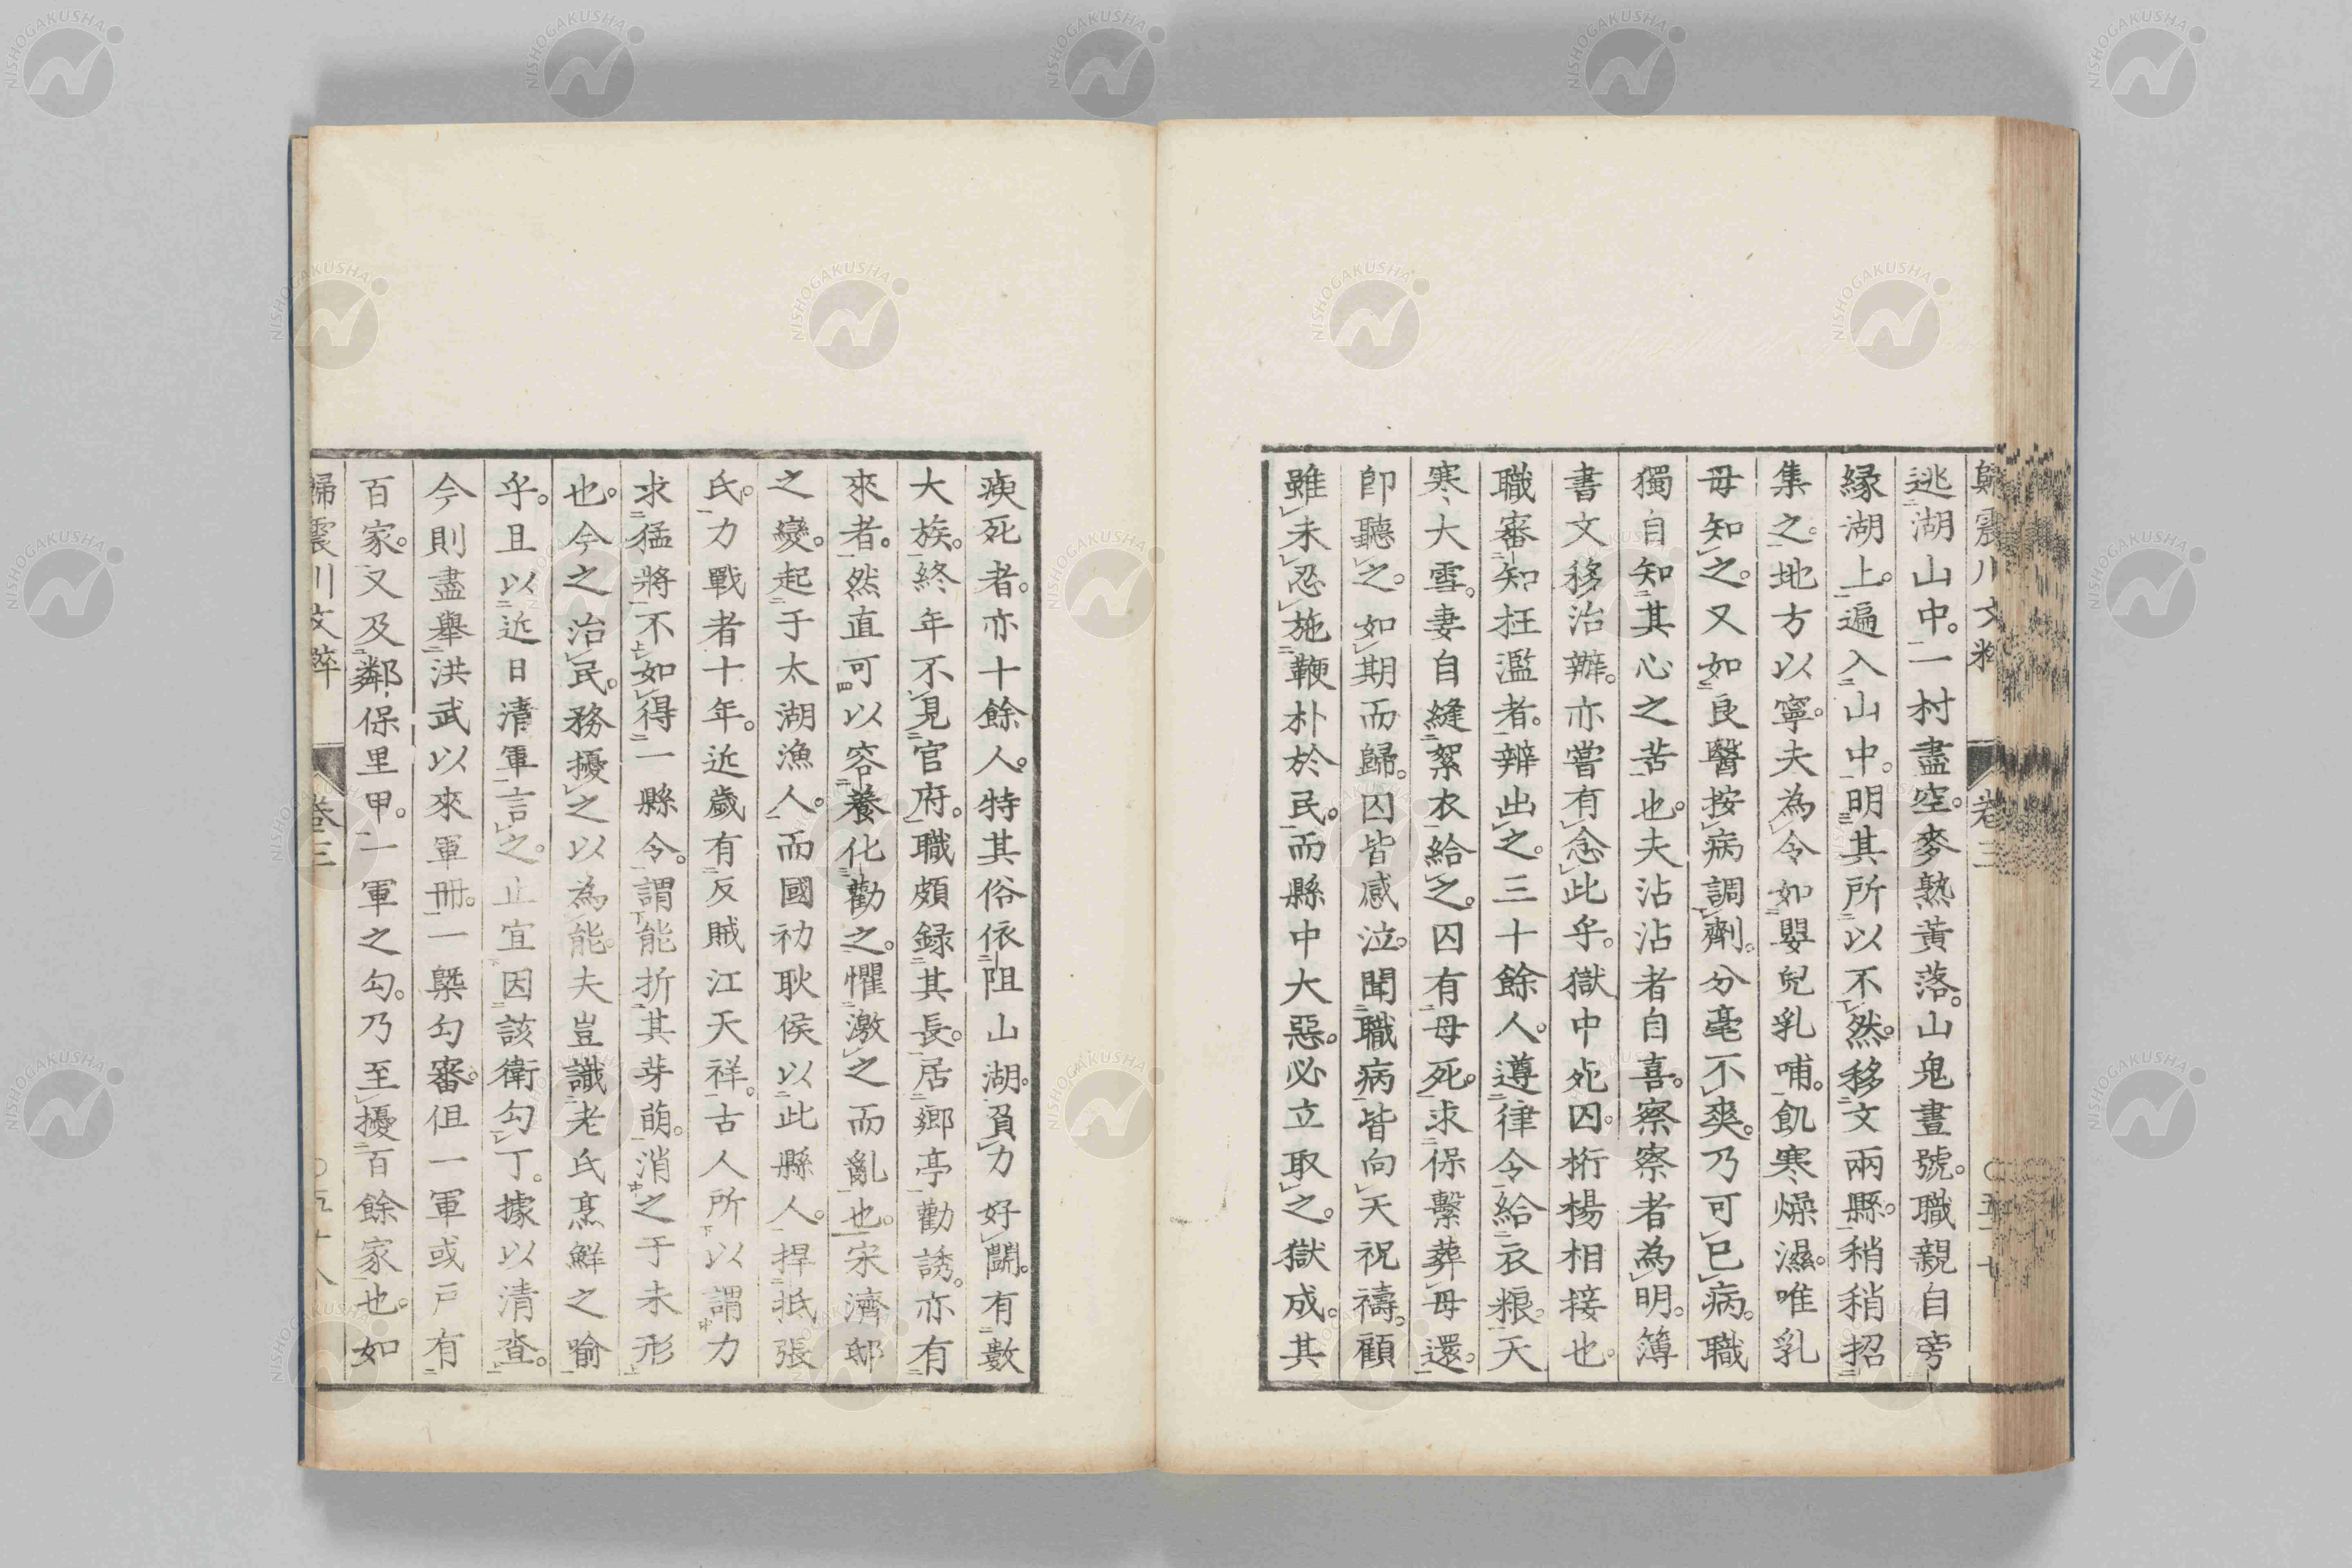 歸震川文粹 卷三 〇五十七
逃湖山中。一村盡空。麥熟黃落。山鬼晝號。職親自旁
緣湖上。遍入山中。明其所以不然。移文兩縣。稍稍招
集之。地方以寧。夫為令如嬰兒乳哺。飢寒燥濕。唯乳
母知之。又如良醫按病調劑。分毫不爽。乃可已病。職
獨自知其心之苦也。夫沾沾者自喜。察察者為明。簿
書文移治辦。亦嘗有念此乎。獄中死囚。桁楊相接也。
職審知枉濫者。辨出之。三十餘人。遵律令給衣粮。天
寒大雪。妻自縫絮衣給之。囚有母死。求保繫葬母還。
即聽之。如期而歸。囚皆感泣。聞職病皆向天祝禱。顧
雖未忍施鞭朴於民。而縣中大惡。必立取之。獄成。其
瘐死者。亦十餘人。特其俗依阻山湖。負力好鬪。有數
大族。終年不見官府。職頗録其長。居鄉亭勸誘。亦有
來者。然直可以容養化勸之。懼激之而亂也。宋濟邸
之變。起于太湖漁人。而國初耿侯以此縣人。捍抵張
氏。力戰者十年。近歲有反賊江天祥。古人所以謂力
求猛將不如得一縣令。謂能折其芽萌。消之于未形
也。今之治民。務擾之以為能。夫豈識老氏烹鮮之喻
乎。且以近日清軍言之。止宜因該衛勾丁。據以清查。
今則盡舉洪武以來軍冊。一槩勾審。但一軍或戶有
百家。又及鄰保里甲。一軍之勾。乃至擾百餘家也。如
歸震川文粹 卷三 〇五十八
NISHOGAKUSHA